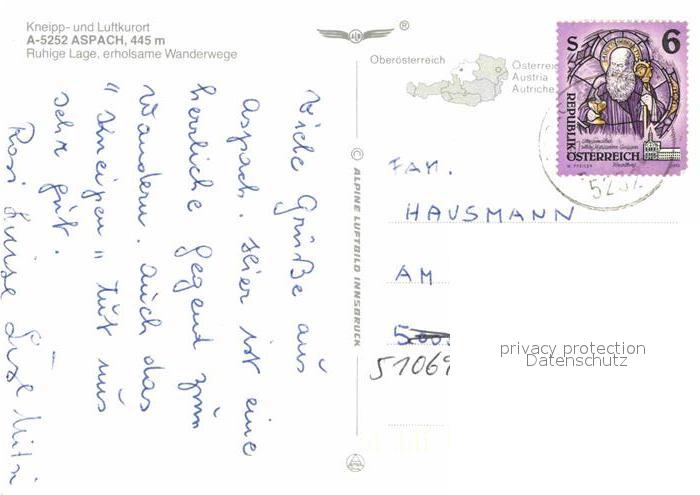 Kneipp- und Luftkurort
A-5252 ASPACH, 445 m
Ruhige Lage, erholsame Wanderwege
Viele Grüße aus
Aspach. Hier ist eine
herrliche Gegend zum
Wandern. Auch das
"Kneipen" tut uns
sehr gut.
Rosi Luise Liesl Mitzi
© ALPINE LUFTBILD INNSBRUCK
®
Oberösterreich
Österreic
Austria
Autriche
S 6
REPUBLIK
ÖSTERREICH
5252
FAM.
HAUSMANN
AM
5000
51069
privacy protection
Datenschutz